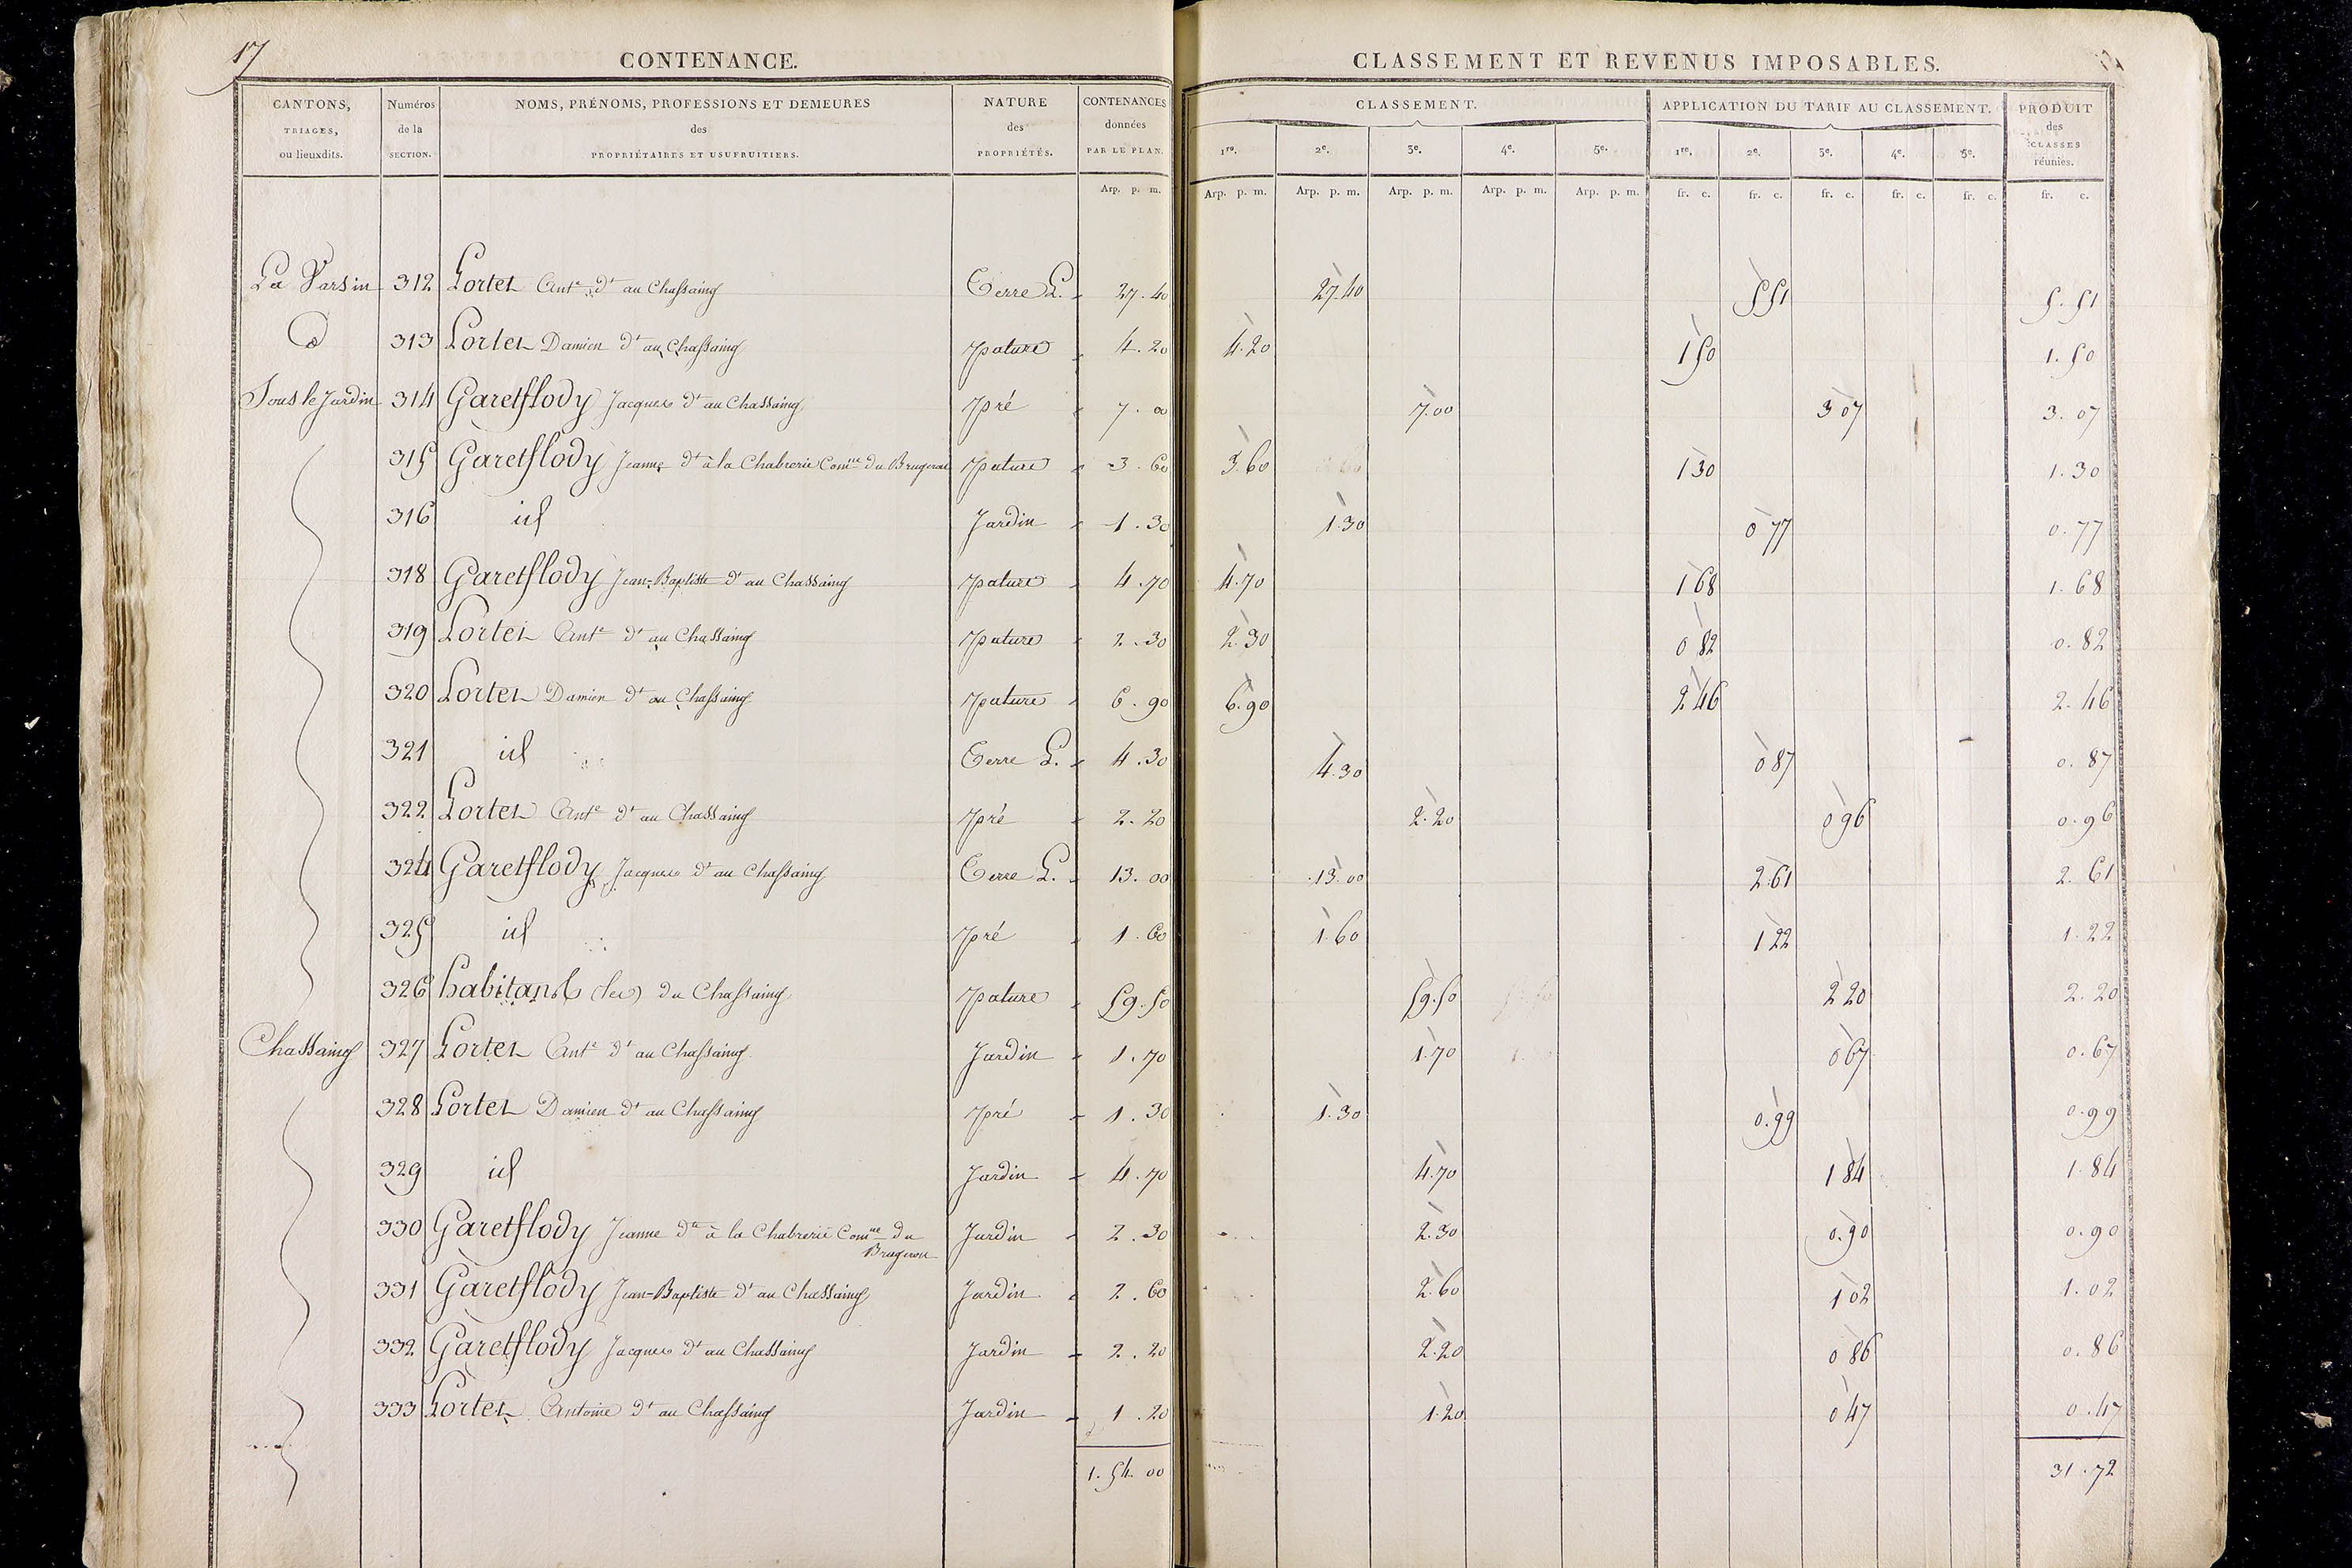 17
CONTENANCE.
CANTONS, TRIAGES, ou lieuxdits. | Numéros de la SECTION. | NOMS, PRÉNOMS, PROFESSIONS ET DEMEURES des PROPRIÉTAIRES ET USUFRUITIERS. | NATURE des PROPRIÉTÉS. | CONTENANCES données PAR LE PLAN.
Arp. p. m.
CLASSEMENT ET REVENUS IMPOSABLES.
CLASSEMENT. | APPLICATION DU TARIF AU CLASSEMENT. | PRODUIT des CLASSES réunies.
1re. 2e. 3e. 4e. 5e. 1re. 2e. 3e. 4e. 5e.
Arp. p. m. Arp. p. m. Arp. p. m. Arp. p. m. Arp. p. m. fr. c. fr. c. fr. c. fr. c. fr. c. fr. c.
La Varsin 312 Portet Ante. dt au Chassaing Terre L. 27.40 27.40 5 51 5.51
d 313 Portet Damien dt au Chassaing pature 4.20 4.20 1 50 1.50
Sous le Jardin 314 Garetflody Jacques dt au Chassaing pré 7.00 7.00 3 07 3.07
315 Garetflody Jeanne dt à la Chabrerie Comne du Brugeron pature 3.60 3.60 1 30 1.30
316 id Jardin 1.30 1.30 0 77 0.77
318 Garetflody Jean-Baptiste dt au Chassaing pature 4.70 4.70 1 68 1.68
319 Portet Ante dt au Chassaing pature 2.30 2.30 0 82 0.82
320 Portet Damien dt au Chassaing pature 6.90 6.90 2 46 2.46
321 id Terre L. 4.30 4.30 0 87 0.87
322 Portet Ante dt au Chassaing pré 2.20 2.20 0 96 0.96
324 Garetflody Jacques dt au Chassaing Terre L. 13.00 13.00 2.61 2.61
325 id pré 1.60 1.60 1 22 1.22
326 habitans (les) du Chassaing pature 59.50 59.50 2 20 2.20
Chassaing 327 Portet Ante dt au Chassaing Jardin 1.70 1.70 0 67 0.67
328 Portet Damien dt au Chassaing pré 1.30 1.30 0.99 0.99
329 id Jardin 4.70 4.70 1 84 1.84
330 Garetflody Jeanne dte à la Chabrerie Comne du Brugeron Jardin 2.30 2.30 0.90 0.90
331 Garetflody Jean-Baptiste dt au Chassaing Jardin 2.60 2.60 1 02 1.02
332 Garetflody Jacques dt au Chassaing Jardin 2.20 2.20 0 86 0.86
333 Portet Antoine dt au Chassaing Jardin 1.20 1.20 0 47 0.47
1.54.00 31.72